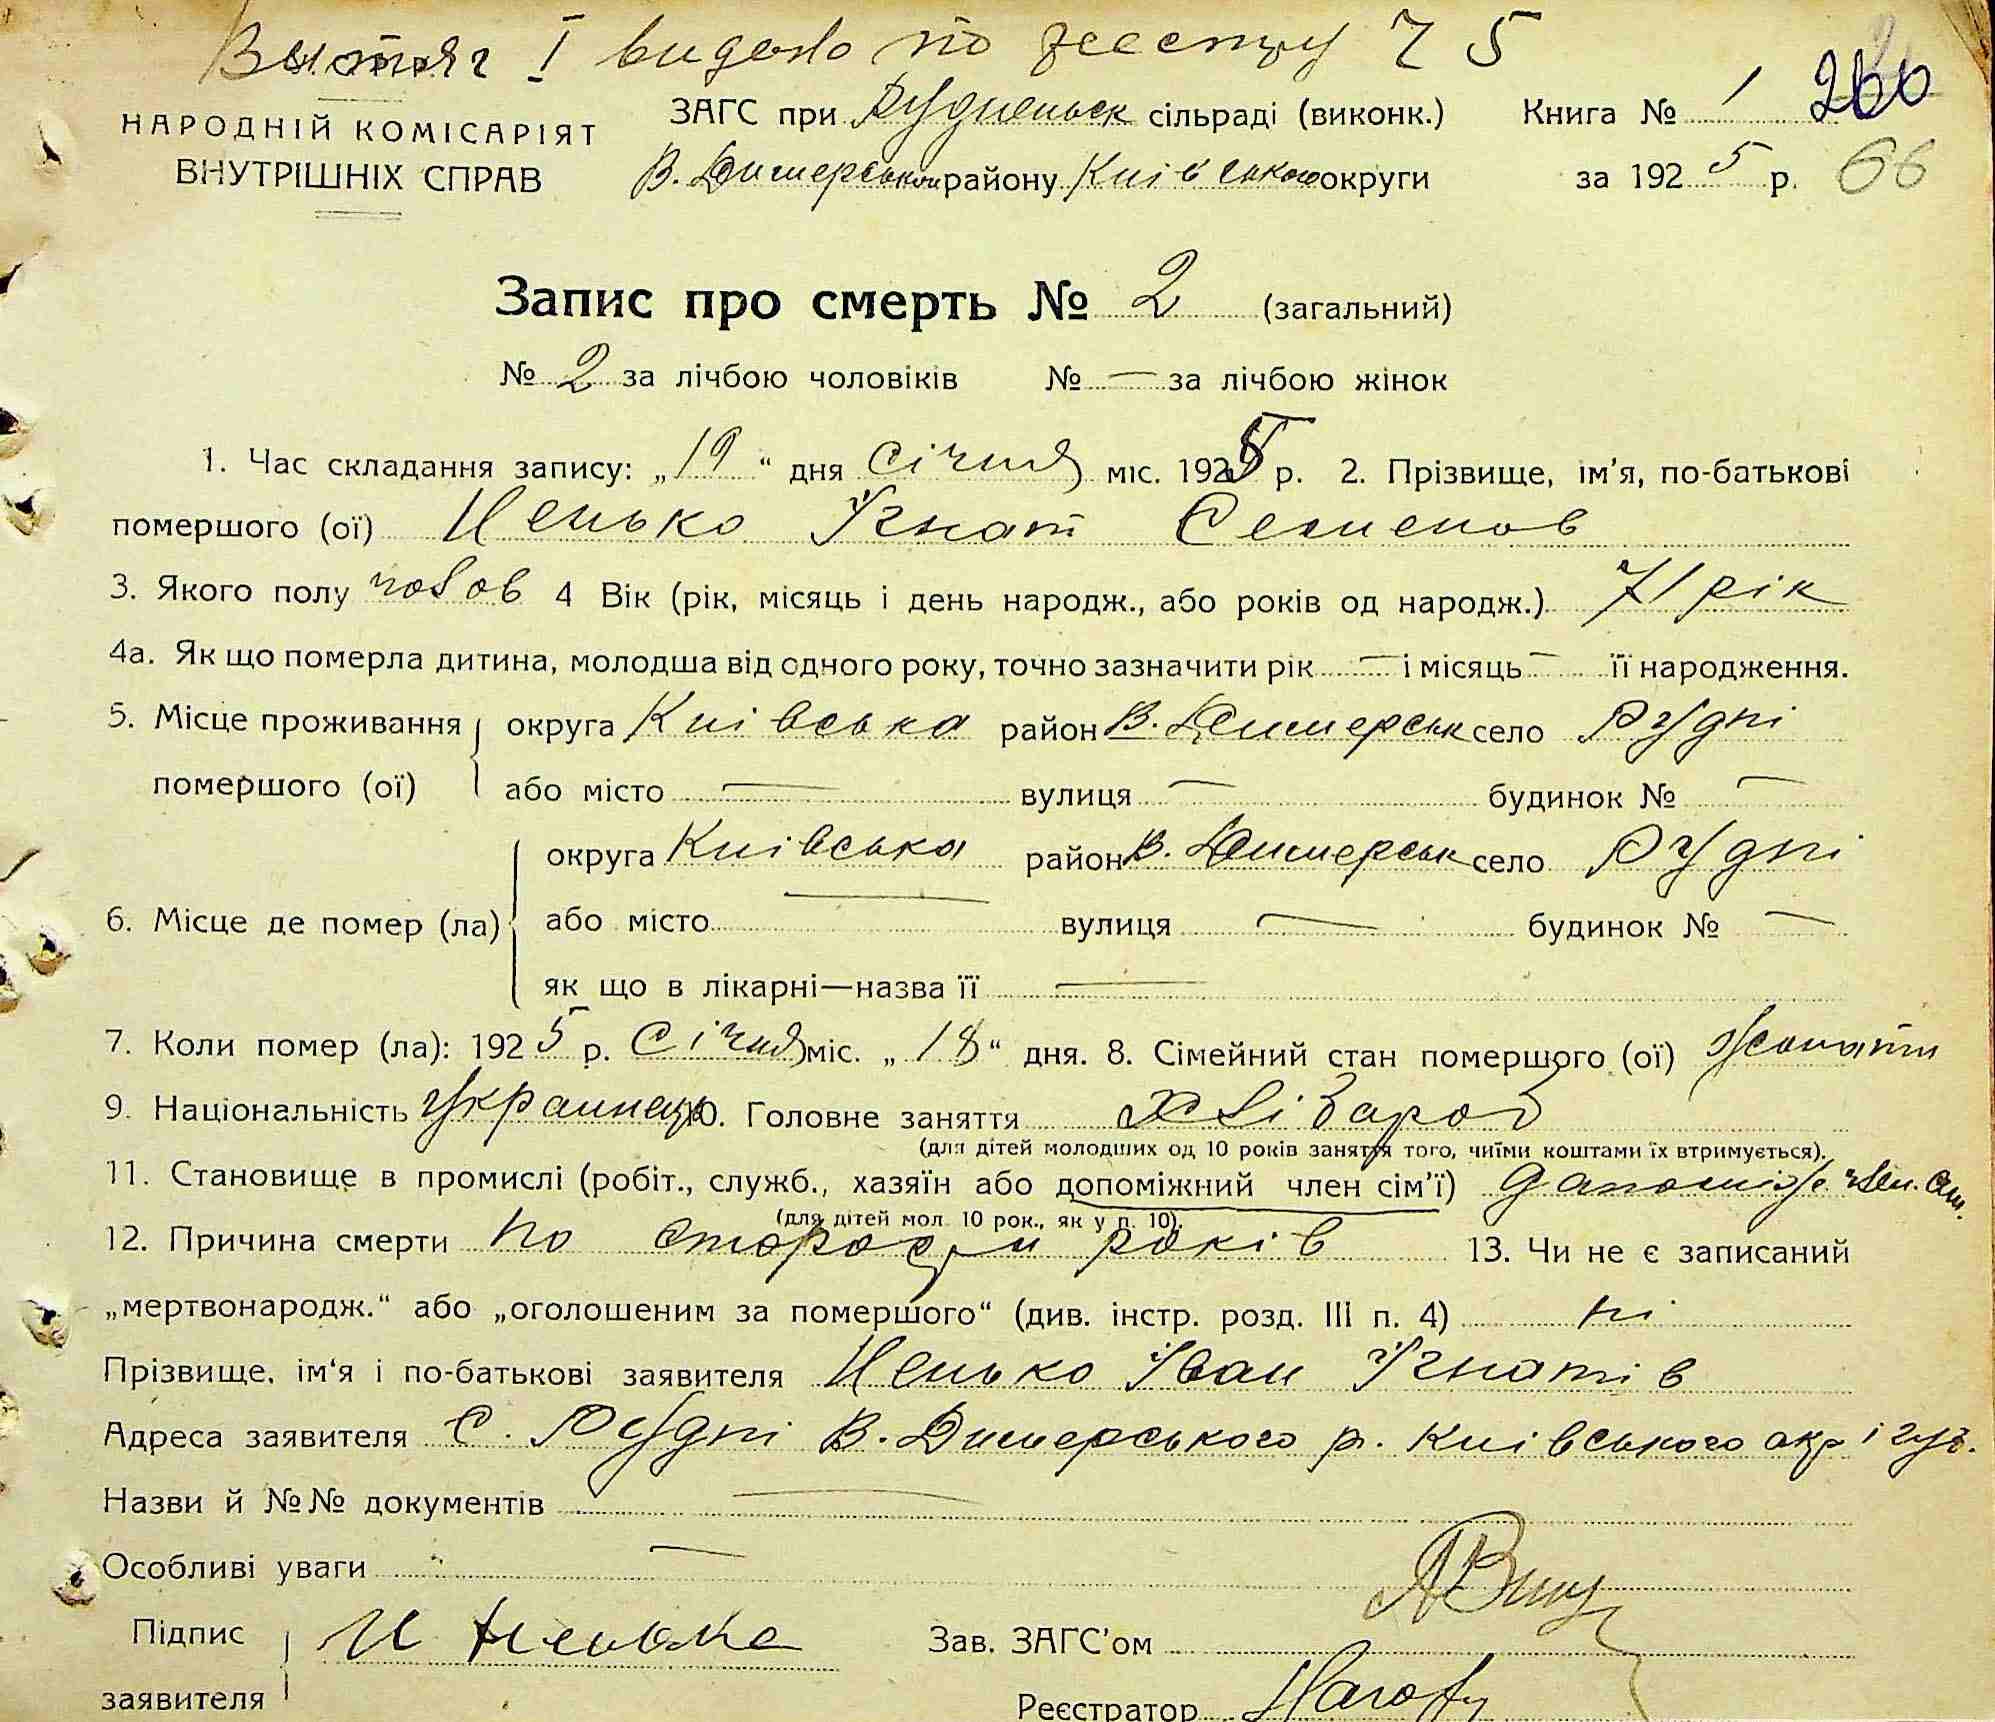 Вытяг I видано по реестру Ч 5
НАРОДНІЙ КОМІСАРІЯТ
ВНУТРІШНІХ СПРАВ
ЗАГС при Рудненьск сільраді (виконк.) Книга № 1 260
В. Димерського району Київського округи за 1925 р. 66
Запис про смерть № 2 (загальний)
№ 2 за лічбою чоловіків № — за лічбою жінок
1. Час складання запису: „19“ дня Січня міс. 1925 р. 2. Прізвище, ім'я, по-батькові
помершого (ої) Ненько Ігнат Семенов
3. Якого полу чолов 4 Вік (рік, місяць і день народж., або років од народж.) 71 рік
4а. Як що померла дитина, молодша від одного року, точно зазначити рік — і місяць — її народження.
5. Місце проживання помершого (ої) округа Київська район В. Димерськ село Рудні
або місто — вулиця — будинок № —
6. Місце де помер (ла) округа Київська район В. Димерськ село Рудні
або місто — вулиця — будинок № —
як що в лікарні—назва її —
7. Коли помер (ла): 1925 р. Січня міс. „18“ дня. 8. Сімейний стан помершого (ої) Жонати
9. Національність Украинець 10. Головне заняття хлібароб
(для дітей молодших од 10 років заняття того, чиїми коштами їх втримується).
11. Становище в промислі (робіт., служб., хазяїн або допоміжний член сім'ї) Дапоміж. член. сім.
(для дітей мол. 10 рок., як у п. 10).
12. Причина смерти по старости років 13. Чи не є записаний
„мертвонародж.“ або „оголошеним за помершого“ (див. інстр. розд. III п. 4) ні
Прізвище, ім'я і по-батькові заявителя Ненько Іван Ігнатів
Адреса заявителя С. Рудні В. Димерського р. Київського окр і губ.
Назви й №№ документів —
Особливі уваги —
Підпис заявителя И Ненько
Зав. ЗАГС'ом
Реєстратор